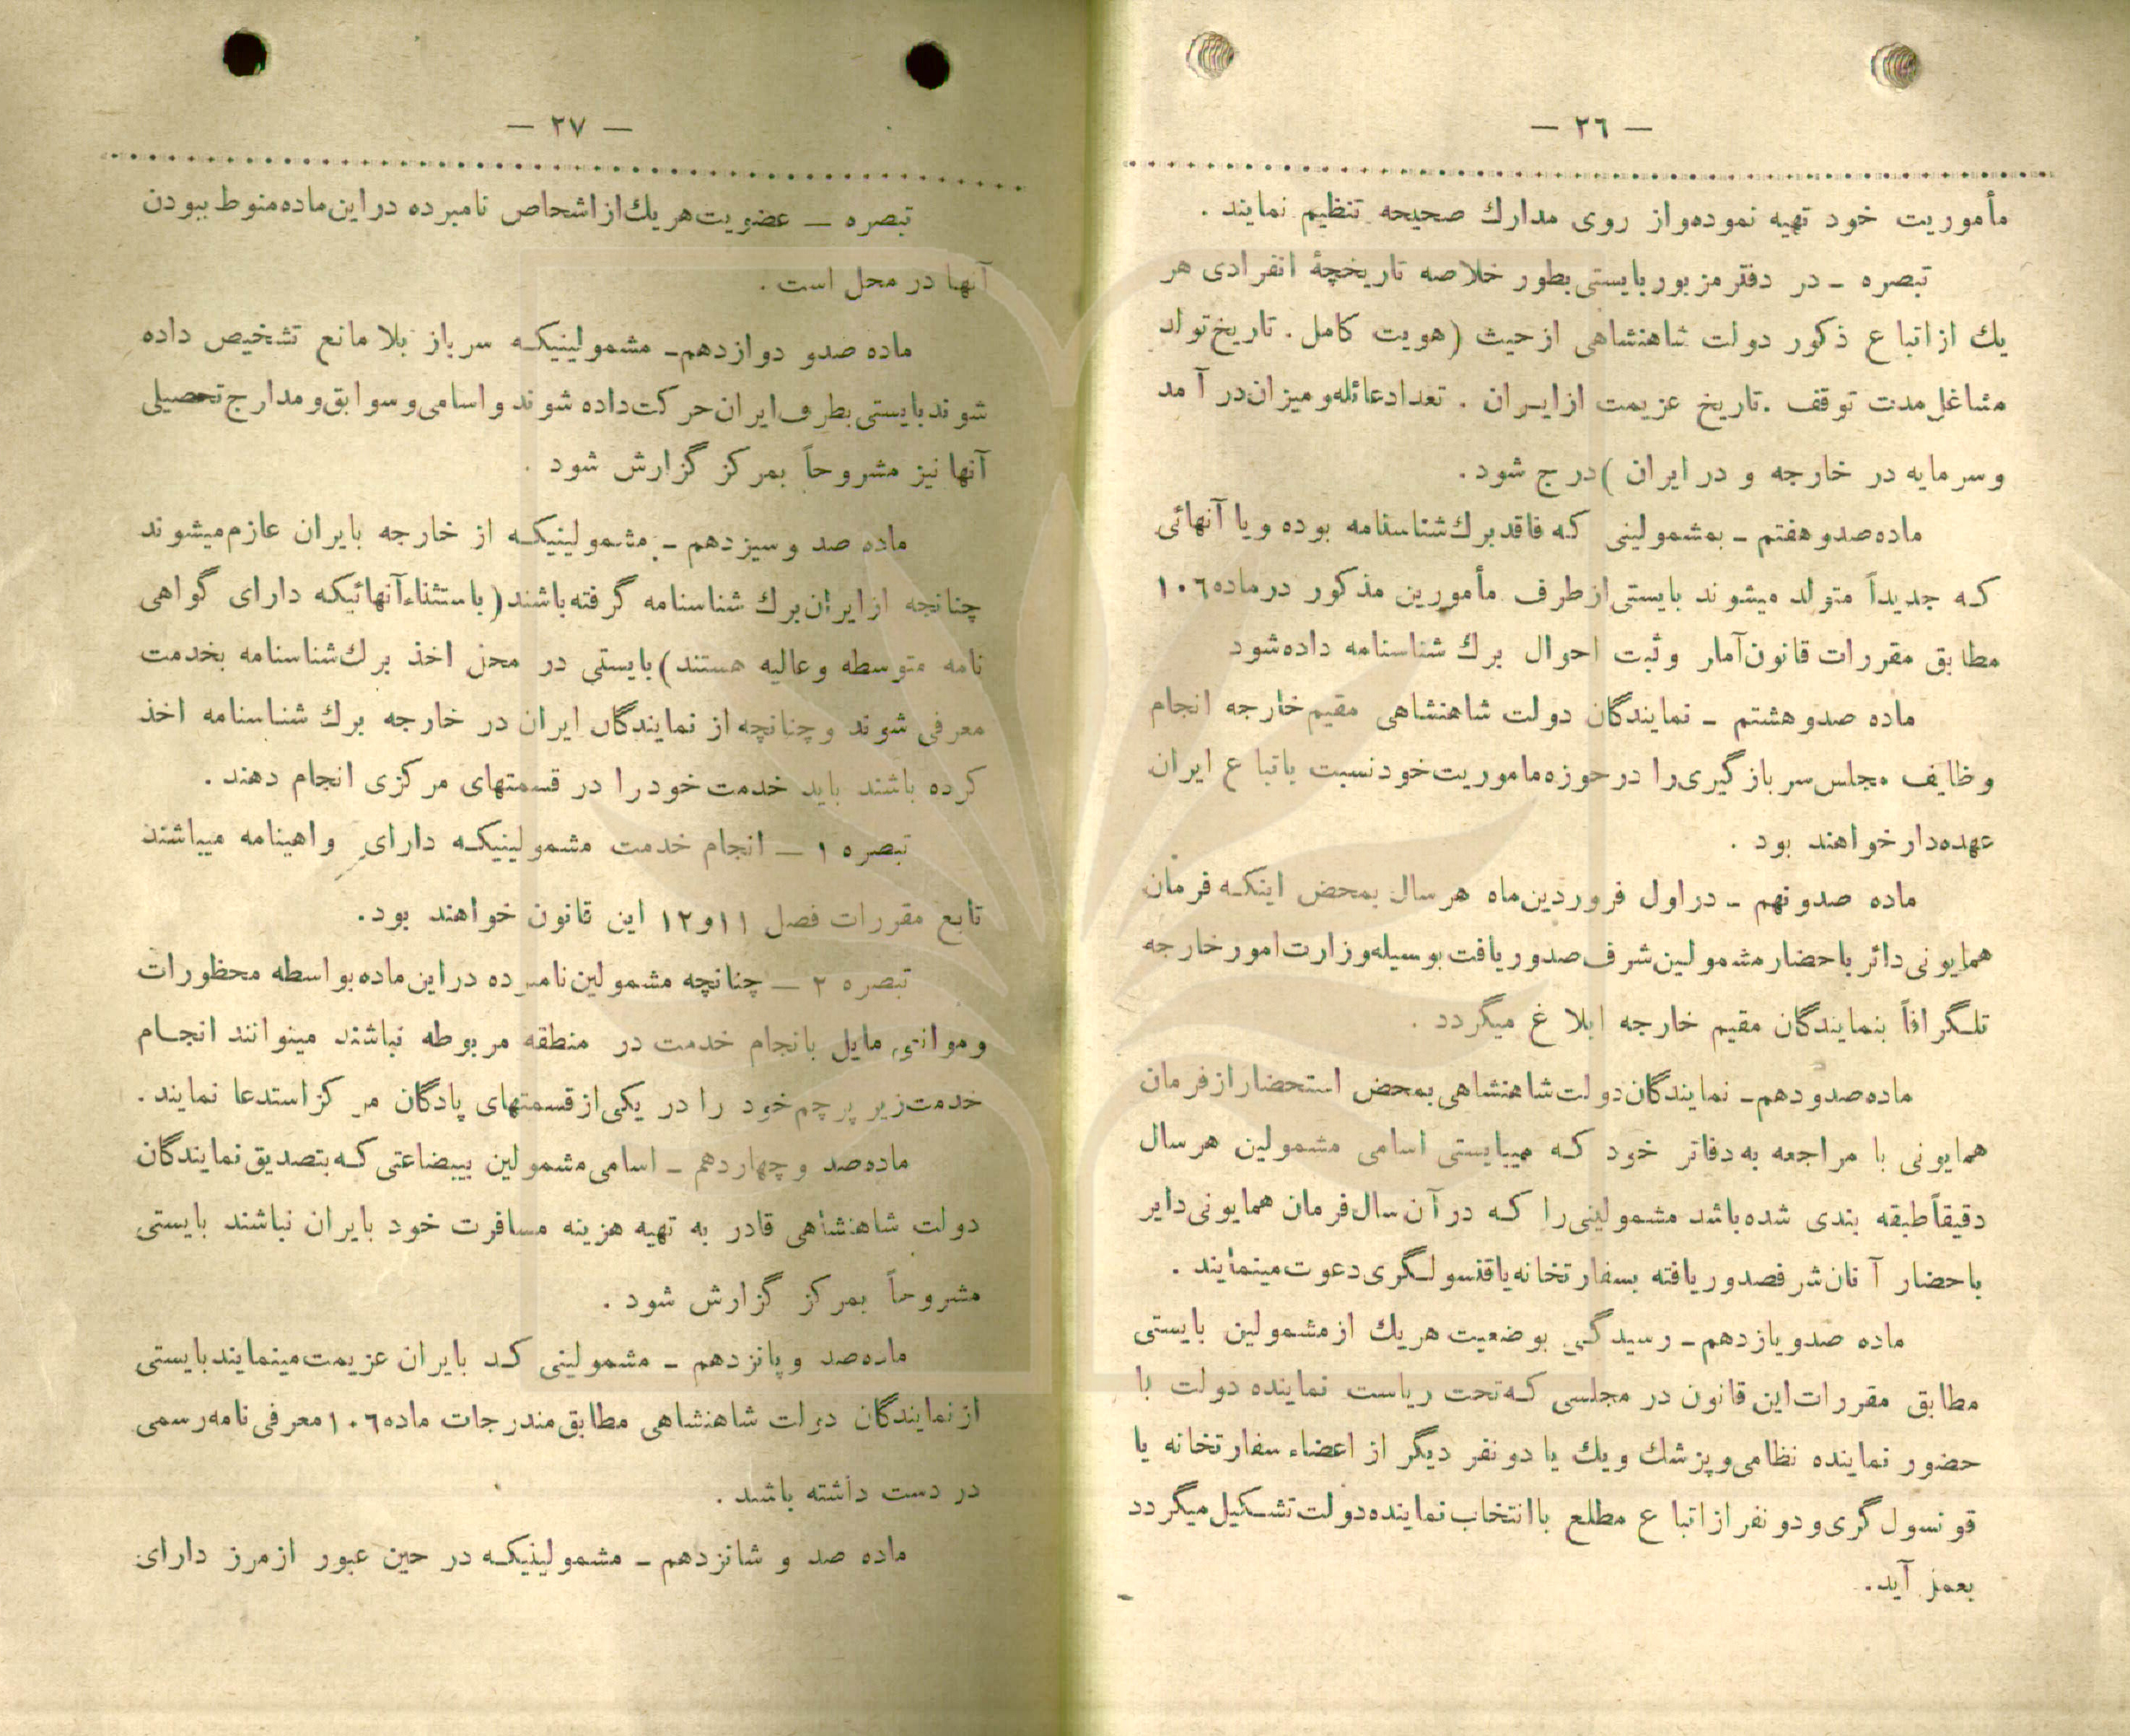 — ٢٦ —
مأموریت خود تهیه نموده‌و از روی مدارك صحیحه تنظیم نمایند .
تبصره ـ در دفتر مزبور بایستی بطور خلاصه تاریخچهٔ انفرادی هر
یك از اتباع ذكور دولت شاهنشاهی از حیث (هویت كامل . تاریخ تولد
مشاغل مدت توقف . تاریخ عزیمت از ایران . تعداد عائله و میزان در آمد
و سرمایه در خارجه و در ایران ) درج شود .
ماده صدو هفتم ـ بمشمولینی كه فاقد برك شناسنامه بوده و یا آنهائی
كه جدیداً متولد میشوند بایستی از طرف مأمورین مذكور در ماده ١٠٦
مطابق مقررات قانون آمار و ثبت احوال برك شناسنامه داده شود
ماده صدو هشتم ـ نمایندگان دولت شاهنشاهی مقیم خارجه انجام
وظایف مجلس سربازگیری را در حوزه ماموریت خود نسبت باتباع ایران
عهده‌دار خواهند بود .
ماده صدو نهم ـ در اول فروردین ماه هر سال بمحض اینكه فرمان
همایونی دائر باحضار مشمولین شرف صدور یافت بوسیله وزارت امور خارجه
تلگرافاً بنمایندگان مقیم خارجه ابلاغ میگردد .
ماده صدو دهم ـ نمایندگان دولت شاهنشاهی بمحض استحضار از فرمان
همایونی با مراجعه به دفاتر خود كه میبایستی اسامی مشمولین هر سال
دقیقاً طبقه بندی شده باشد مشمولینی را كه در آن سال فرمان همایونی دایر
باحضار آنان شرفصدور یافته بسفارتخانه یا قنسولگری دعوت مینمایند .
ماده صدو یازدهم ـ رسیدگی بوضعیت هر یك از مشمولین بایستی
مطابق مقررات این قانون در مجلسی كه تحت ریاست نماینده دولت با
حضور نماینده نظامی و پزشك و یك یا دو نفر دیگر از اعضاء سفارتخانه یا
قونسول گری و دو نفر از اتباع مطلع با انتخاب نماینده دولت تشكیل میگردد
بعمل آید .
— ٢٧ —
تبصره ـ عضویت هر یك از اشخاص نامبرده در این ماده منوط ببودن
آنها در محل است .
ماده صدو دوازدهم ـ مشمولینیكه سرباز بلامانع تشخیص داده
شوند بایستی بطرف ایران حركت داده شوند و اسامی و سوابق و مدارج تحصیلی
آنها نیز مشروحاً بمركز گزارش شود .
ماده صد و سیزدهم ـ مشمولینیكه از خارجه بایران عازم میشوند
چنانچه از ایران برك شناسنامه گرفته باشند (باستثناء آنهائیكه دارای گواهی
نامه متوسطه و عالیه هستند) بایستی در محل اخذ برك شناسنامه بخدمت
معرفی شوند و چنانچه از نمایندگان ایران در خارجه برك شناسنامه اخذ
كرده باشند باید خدمت خود را در قسمتهای مركزی انجام دهند .
تبصره ١ ـ انجام خدمت مشمولینیكه دارای واهینامه میباشند
تابع مقررات فصل ١١و١٢ این قانون خواهند بود .
تبصره ٢ ـ چنانچه مشمولین نامبرده در این ماده بواسطه محظورات
و موانعی مایل بانجام خدمت در منطقه مربوطه نباشند میتوانند انجام
خدمت زیر پرچم خود را در یكی از قسمتهای پادگان مركز استدعا نمایند .
ماده صد و چهاردهم ـ اسامی مشمولین بیبضاعتی كه بتصدیق نمایندگان
دولت شاهنشاهی قادر به تهیه هزینه مسافرت خود بایران نباشند بایستی
مشروحاً بمركز گزارش شود .
ماده صد و پانزدهم ـ مشمولینی كه بایران عزیمت مینمایند بایستی
از نمایندگان دولت شاهنشاهی مطابق مندرجات ماده ١٠٦ معرفی نامه رسمی
در دست داشته باشد .
ماده صد و شانزدهم ـ مشمولینیكه در حین عبور از مرز دارای